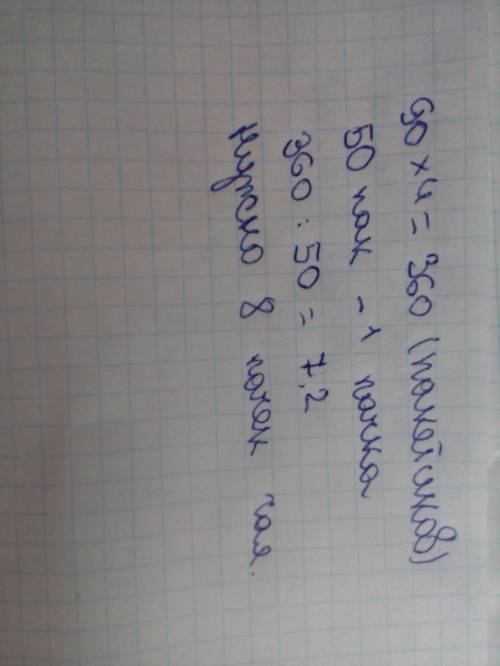 90 × 4 = 360 (пакетиков)
50 пак - 1 пачка
360 : 50 = 7,2
Нужно 8 пачек чая.